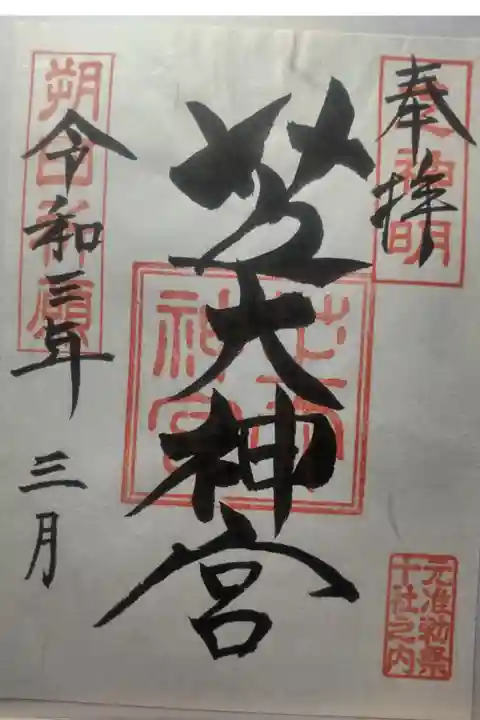 奉拝
芝大神宮
令和三年
三月
朔日祈願
芝大
神宮
元准勅祭
十社之内